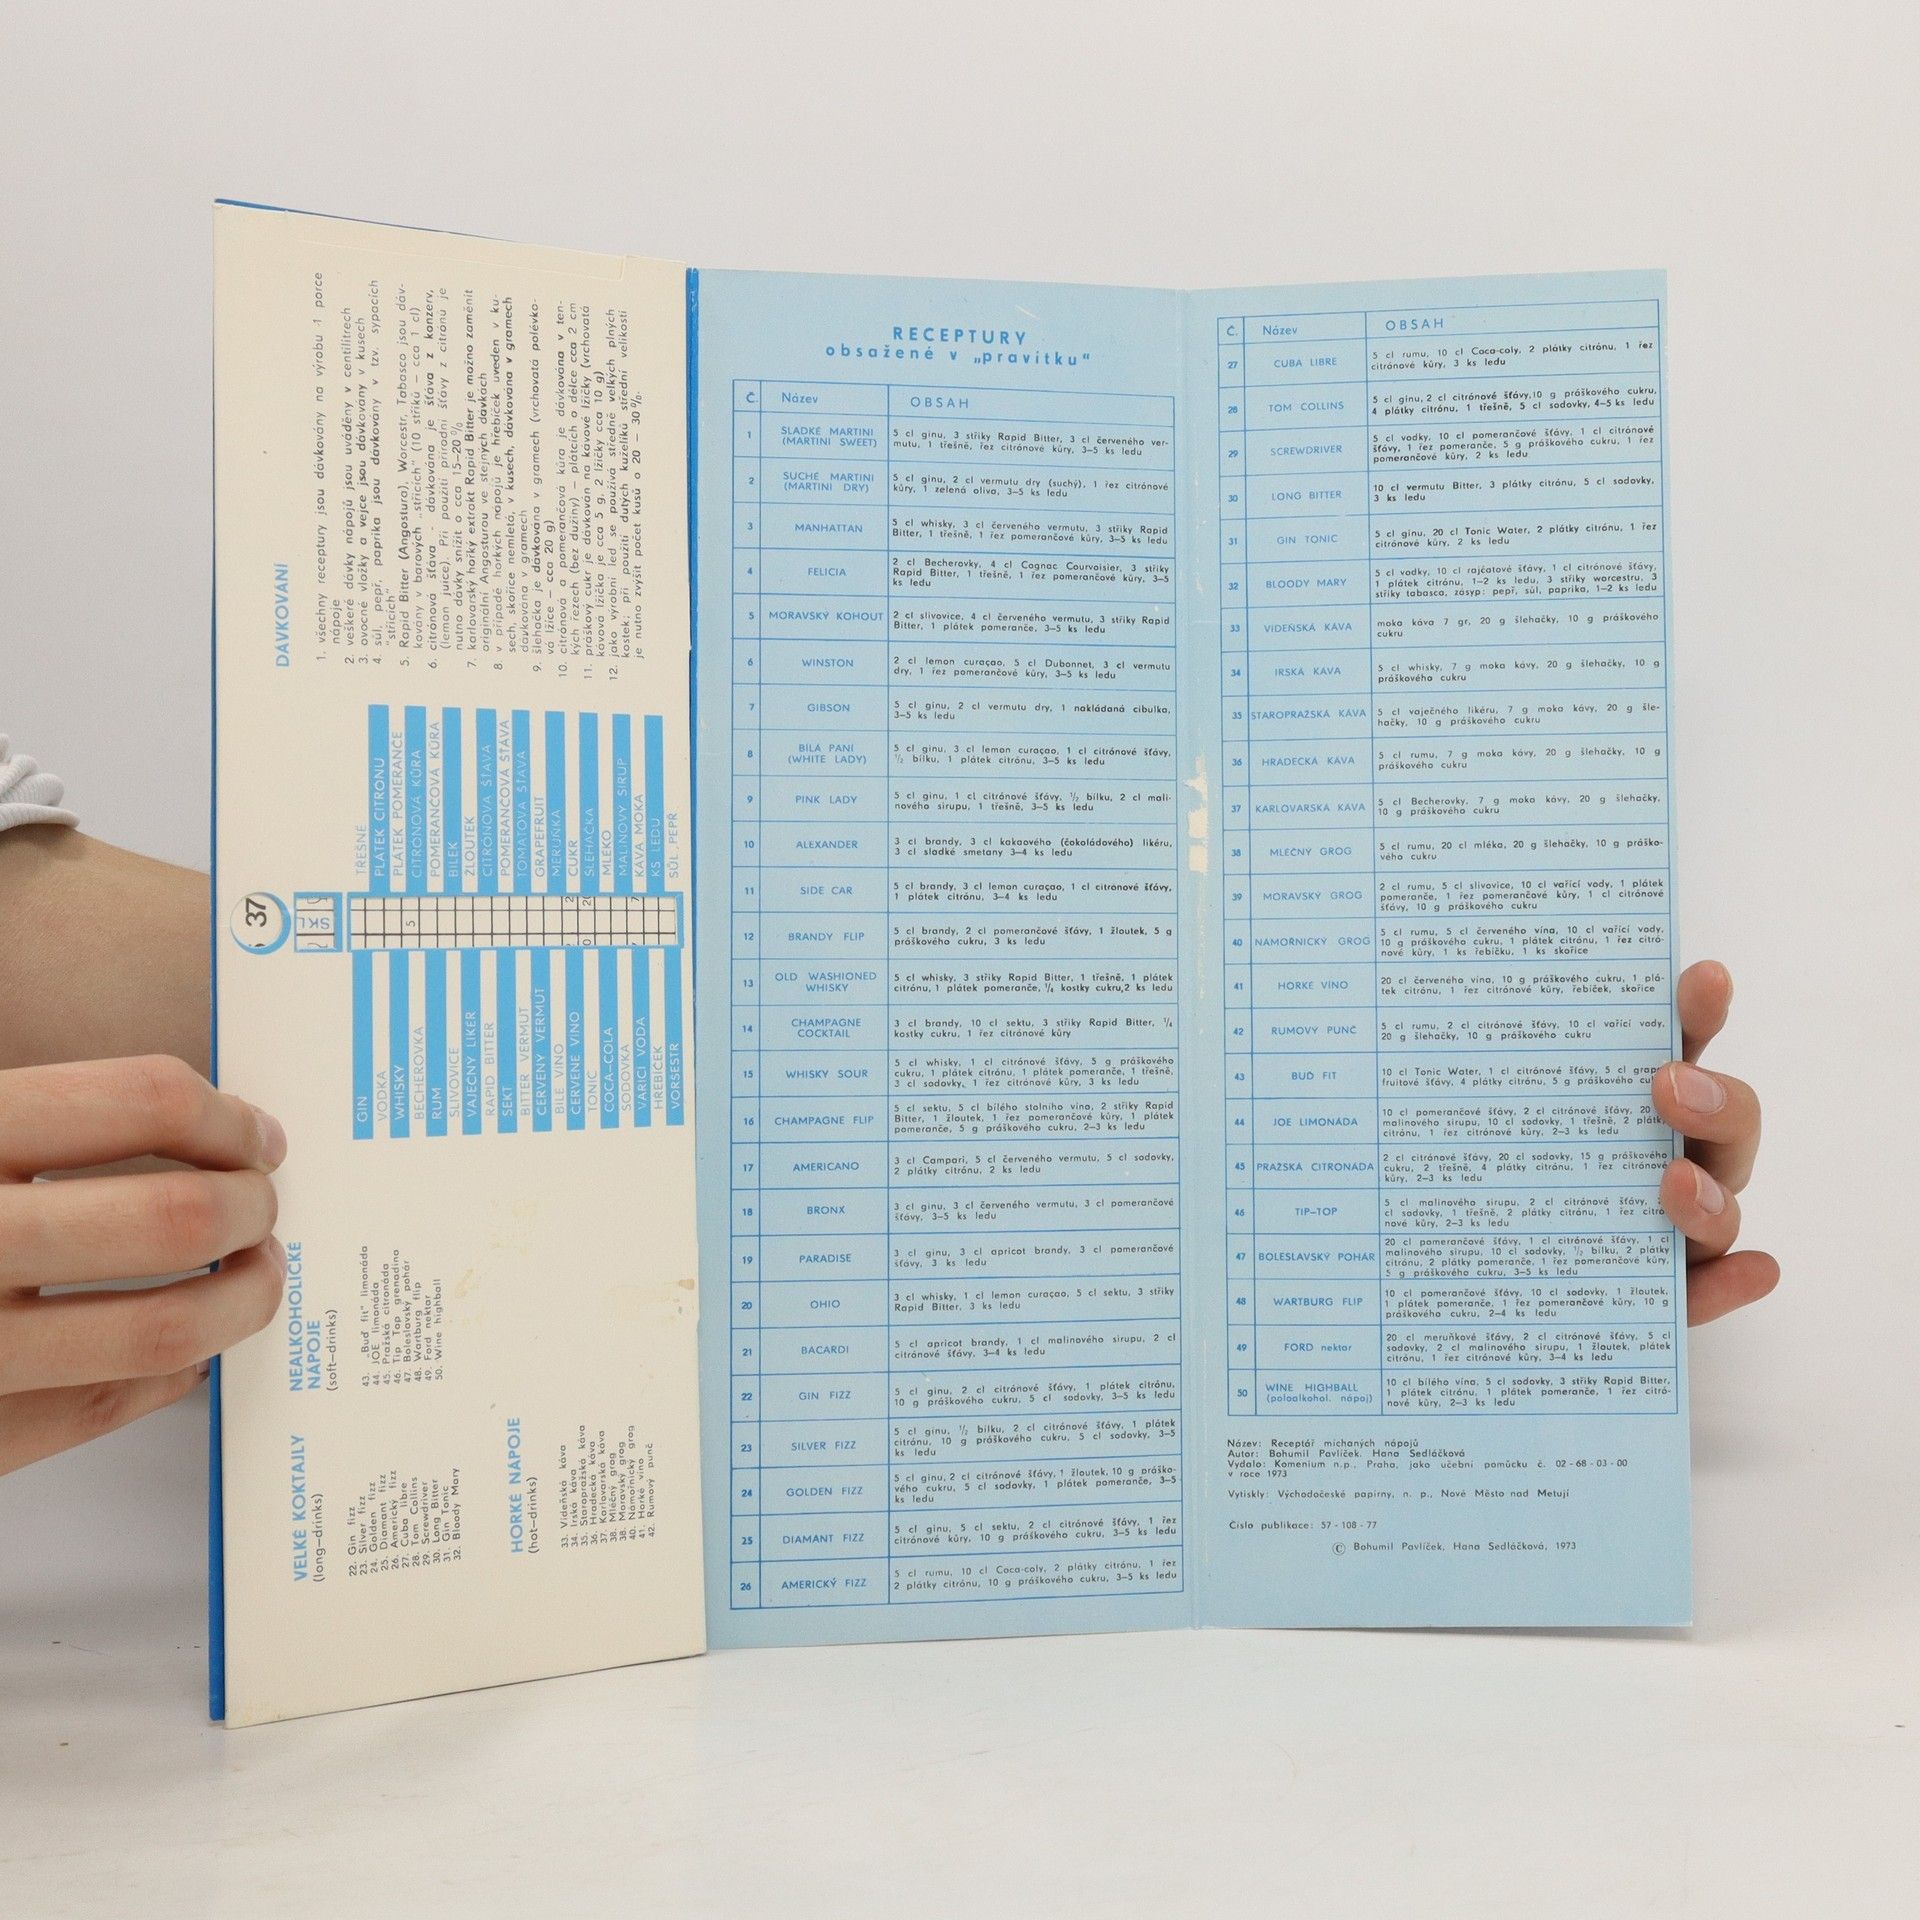 DÁVKOVÁNÍ
1. všechny receptury jsou dávkovány na výrobu 1 porce
nápoje
2. veškeré dávky nápojů jsou uváděny v centilitrech
3. ovocné vložky a vejce jsou dávkovány v kusech
4. sůl, pepř, paprika jsou dávkovány v tzv. sypacích
"střicích"
5. Rapid Bitter (Angostura), Worcestr, Tabasco jsou dáv-
kovány v barových „střicích" (10 střiků — cca 1 cl)
6. citrónová šťáva - dávkována je šťáva z konzerv,
(lemon juice). Při použití přírodní šťávy z citrónů je
nutno dávky snížit o cca 15—20 %
7. karlovarský hořký extrakt Rapid Bitter je možno zaměnit
originální Angosturou ve stejných dávkách
8. v případě horkých nápojů je hřebíček uveden v ku-
sech, skořice nemletá, v kusech, dávkována v gramech
dávkována v gramech
9. šlehačka je dávkována v gramech (vrchovatá polévko-
vá lžíce — cca 20 g)
10. citrónová a pomerančová kůra je dávkována v ten-
kých řezech (bez dužiny) — plátcích o délce cca 2 cm
11. práškový cukr je dávkován na kávové lžičky (vrchovatá
kávová lžička je cca 5 g, 2 lžičky cca 10 g)
12. jako výrobní led se používá středně velkých plných
kostek; při použití dutých kuželíků střední velikosti
je nutno zvýšit počet kusů o 20 — 30 %.
37
SKL
TŘEŠNĚ
PLÁTEK CITRONU
PLÁTEK POMERANČE
CITRONOVÁ KŮRA
POMERANČOVÁ KŮRA
BÍLEK
ŽLOUTEK
CITRONOVÁ ŠŤÁVA
POMERANČOVÁ ŠŤÁVA
TOMATOVÁ ŠŤÁVA
GRAPEFRUIT
MERUŇKA
CUKR
ŠLEHAČKA
MLÉKO
MALINOVÝ SIRUP
KÁVA MOKA
KS LEDU
SŮL, PEPŘ
5
GIN
VODKA
WHISKY
BECHEROVKA
RUM
SLIVOVICE
VAJEČNÝ LIKÉR
RAPID BITTER
SEKT
BITTER VERMUT
ČERVENÝ VERMUT
BÍLÉ VÍNO
ČERVENÉ VÍNO
TONIC
COCA-COLA
SODOVKA
VAŘÍCÍ VODA
HŘEBÍČEK
VORSESTR
VELKÉ KOKTAJLY
(long—drinks)
22. Gin fizz
23. Silver fizz
24. Golden fizz
25. Diamant fizz
26. Americký fizz
27. Cuba libre
28. Tom Collins
29. Screwdriver
30. Long Bitter
31. Gin Tonic
32. Bloody Mary
NEALKOHOLICKÉ
NÁPOJE
(soft—drinks)
43. „Buď fit" limonáda
44. JOE limonáda
45. Pražská citronáda
46. Tip Top grenadina
47. Boleslavský pohár
48. Wartburg flip
49. Ford nektar
50. Wine highball
HORKÉ NÁPOJE
(hot—drinks)
33. Vídeňská káva
34. Irská káva
35. Staropražská káva
36. Hradecká káva
37. Karlovarská káva
38. Mléčný grog
38. Moravský grog
40. Námořnický grog
41. Horké víno
42. Rumový punč
RECEPTURY
obsažené v „pravítku"
Č. Název OBSAH
1 SLADKÉ MARTINI (MARTINI SWEET) 5 cl ginu, 3 střiky Rapid Bitter, 3 cl červeného ver-
mutu, 1 třešně, řez citrónové kůry, 3—5 ks ledu
2 SUCHÉ MARTINI (MARTINI DRY) 5 cl ginu, 2 cl vermutu dry (suchý), 1 řez citrónové
kůry, 1 zelená oliva, 3—5 ks ledu
3 MANHATTAN 5 cl whisky, 3 cl červeného vermutu, 3 střiky Rapid
Bitter, 1 třešně, 1 řez pomerančové kůry, 3—5 ks ledu
4 FELICIA 2 cl Becherovky, 4 cl Cognac Courvoisier, 3 střiky
Rapid Bitter, 1 třešně, 1 řez pomerančové kůry, 3—5
ks ledu
5 MORAVSKÝ KOHOUT 2 cl slivovice, 4 cl červeného vermutu, 3 střiky Rapid
Bitter, 1 plátek pomeranče, 3—5 ks ledu
6 WINSTON 2 cl lemon curaçao, 5 cl Dubonnet, 3 cl vermutu
dry, 1 řez pomerančové kůry, 3—5 ks ledu
7 GIBSON 5 cl ginu, 2 cl vermutu dry, 1 nakládaná cibulka,
3—5 ks ledu
8 BÍLÁ PANÍ (WHITE LADY) 5 cl ginu, 3 cl lemon curaçao, 1 cl citrónové šťávy,
½ bílku, 1 plátek citrónu, 3—5 ks ledu
9 PINK LADY 5 cl ginu, 1 cl citrónové šťávy, ½ bílku, 2 cl mali-
nového sirupu, 1 třešně, 3—5 ks ledu
10 ALEXANDER 3 cl brandy, 3 cl kakaového (čokoládového) likéru,
3 cl sladké smetany 3—4 ks ledu
11 SIDE CAR 5 cl brandy, 3 cl lemon curaçao, 1 cl citronové šťávy,
1 plátek citrónu, 3—4 ks ledu
12 BRANDY FLIP 5 cl brandy, 2 cl pomerančové šťávy, 1 žloutek, 5 g
práškového cukru, 3 ks ledu
13 OLD WASHIONED WHISKY 5 cl whisky, 3 střiky Rapid Bitter, 1 třešně, 1 plátek
citrónu, 1 plátek pomeranče, ¼ kostky cukru, 2 ks ledu
14 CHAMPAGNE COCKTAIL 3 cl brandy, 10 cl sektu, 3 střiky Rapid Bitter, ¼
kostky cukru, 1 řez citrónové kůry
15 WHISKY SOUR 5 cl whisky, 1 cl citrónové šťávy, 5 g práškového
cukru, 1 plátek citrónu, 1 plátek pomeranče, 1 třešně,
3 cl sodovky, 1 řez citrónové kůry, 3 ks ledu
16 CHAMPAGNE FLIP 5 cl sektu, 5 cl bílého stolního vína, 2 střiky Rapid
Bitter, 1 žloutek, 1 řez pomerančové kůry, 1 plátek
pomeranče, 5 g práškového cukru, 2—3 ks ledu
17 AMERICANO 3 cl Campari, 5 cl červeného vermutu, 5 cl sodovky,
2 plátky citrónu, 2 ks ledu
18 BRONX 3 cl ginu, 3 cl červeného vermutu, 3 cl pomerančové
šťávy, 3—5 ks ledu
19 PARADISE 3 cl ginu, 3 cl apricot brandy, 3 cl pomerančové
šťávy, 3 ks ledu
20 OHIO 3 cl whisky, 1 cl lemon curaçao, 5 cl sektu, 3 střiky
Rapid Bitter, 3 ks ledu
21 BACARDI 5 cl apricot brandy, 1 cl malinového sirupu, 2 cl
citrónové šťávy, 3—4 ks ledu
22 GIN FIZZ 5 cl ginu, 2 cl citrónové šťávy, 1 plátek citrónu,
10 g práškového cukru, 5 cl sodovky, 3—5 ks ledu
23 SILVER FIZZ 5 cl ginu, ½ bílku, 2 cl citrónové šťávy, 1 plátek
citrónu, 10 g práškového cukru, 5 cl sodovky, 3—5
ks ledu
24 GOLDEN FIZZ 5 cl ginu, 2 cl citrónové šťávy, 1 žloutek, 10 g práško-
vého cukru, 5 cl sodovky, 1 plátek pomeranče, 3—5
ks ledu
25 DIAMANT FIZZ 5 cl ginu, 5 cl sektu, 2 cl citrónové šťávy, 1 řez
citrónové kůry, 10 g práškového cukru, 3—5 ks ledu
26 AMERICKÝ FIZZ 5 cl rumu, 10 cl Coca-coly, 2 plátky citrónu, 1 řez
2 plátky citrónu, 10 g práškového cukru, 3—5 ks ledu
Č. Název OBSAH
27 CUBA LIBRE 5 cl rumu, 10 cl Coca-coly, 2 plátky citrónu, 1 řez
citrónové kůry, 3 ks ledu
28 TOM COLLINS 5 cl ginu, 2 cl citrónové šťávy, 10 g práškového cukru,
4 plátky citrónu, 1 třešně, 5 cl sodovky, 4—5 ks ledu
29 SCREWDRIVER 5 cl vodky, 10 cl pomerančové šťávy, 1 cl citrónové
šťávy, 1 řez pomeranče, 5 g práškového cukru, 1 řez
pomerančové kůry, 2 ks ledu
30 LONG BITTER 10 cl vermutu Bitter, 3 plátky citrónu, 5 cl sodovky,
3 ks ledu
31 GIN TONIC 5 cl ginu, 20 cl Tonic Water, 2 plátky citrónu, 1 řez
citrónové kůry, 2 ks ledu
32 BLOODY MARY 5 cl vodky, 10 cl rajčatové šťávy, 1 cl citrónové šťávy,
1 plátek citrónu, 1—2 ks ledu, 3 střiky worcestru, 3
střiky tabasca, zásyp: pepř, sůl, paprika, 1—2 ks ledu
33 VÍDEŇSKÁ KÁVA moka káva 7 gr, 20 g šlehačky, 10 g práškového
cukru
34 IRSKÁ KÁVA 5 cl whisky, 7 g moka kávy, 20 g šlehačky, 10 g
práškového cukru
35 STAROPRAŽSKÁ KÁVA 5 cl vaječného likéru, 7 g moka kávy, 20 g šle-
hačky, 10 g práškového cukru
36 HRADECKÁ KÁVA 5 cl rumu, 7 g moka kávy, 20 g šlehačky, 10 g
práškového cukru
37 KARLOVARSKÁ KÁVA 5 cl Becherovky, 7 g moka kávy, 20 g šlehačky,
10 g práškového cukru
38 MLÉČNÝ GROG 5 cl rumu, 20 cl mléka, 20 g šlehačky, 10 g práško-
vého cukru
39 MORAVSKÝ GROG 2 cl rumu, 5 cl slivovice, 10 cl vařící vody, 1 plátek
pomeranče, 1 řez pomerančové kůry, 1 cl citrónové
šťávy, 10 g práškového cukru
40 NÁMOŘNICKÝ GROG 5 cl rumu, 5 cl červeného vína, 10 cl vařící vody,
10 g práškového cukru, 1 plátek citrónu, 1 řez citró-
nové kůry, 1 ks řebíčku, 1 ks skořice
41 HORKÉ VÍNO 20 cl červeného vína, 10 g práškového cukru, 1 plá-
tek citrónu, 1 řez citrónové kůry, řebíček, skořice
42 RUMOVÝ PUNČ 5 cl rumu, 2 cl citrónové šťávy, 10 cl vařící vody,
20 g šlehačky, 10 g práškového cukru
43 BUĎ FIT 10 cl Tonic Water, 1 cl citrónové šťávy, 5 cl grape
fruitové šťávy, 4 plátky citrónu, 5 g práškového cu
44 JOE LIMONÁDA 10 cl pomerančové šťávy, 2 cl citrónové šťávy, 20
malinového sirupu, 10 cl sodovky, 1 třešně, 2 plátk
citrónu, 1 řez citrónové kůry, 2—3 ks ledu
45 PRAŽSKÁ CITRONÁDA 2 cl citrónové šťávy, 20 cl sodovky, 15 g práškového
cukru, 2 třešně, 4 plátky citrónu, 1 řez citrónové
kůry, 2—3 ks ledu
46 TIP—TOP 5 cl malinového sirupu, 2 cl citrónové šťávy,
cl sodovky, 1 třešně, 2 plátky citrónu, 1 řez citró
nové kůry, 2—3 ks ledu
47 BOLESLAVSKÝ POHÁR 20 cl pomerančové šťávy, 1 cl citrónové šťávy, 1 cl
malinového sirupu, 10 cl sodovky, ½ bílku, 2 plátky
citrónu, 2 plátky pomeranče, 1 řez pomerančové kůry,
5 g práškového cukru, 3—5 ks ledu
48 WARTBURG FLIP 10 cl pomerančové šťávy, 10 cl sodovky, 1 žloutek,
1 plátek pomeranče, 1 řez pomerančové kůry, 10 g
práškového cukru, 2—4 ks ledu
49 FORD nektar 20 cl meruňkové šťávy, 2 cl citrónové šťávy, 5 cl
sodovky, 2 cl malinového sirupu, 1 žloutek, plátek
citrónu, 1 řez citrónové kůry, 3—4 ks ledu
50 WINE HIGHBALL (poloalkohol. nápoj) 10 cl bílého vína, 5 cl sodovky, 3 střiky Rapid Bitter,
1 plátek citrónu, 1 plátek pomeranče, 1 řez citró-
nové kůry, 2—3 ks ledu
Název: Receptář míchaných nápojů
Autor: Bohumil Pavlíček, Hana Sedláčková
Vydalo: Komenium n.p., Praha, jako učební pomůcku č. 02-68-03-00
v roce 1973
Vytiskly: Východočeské papírny, n. p., Nové Město nad Metují
Číslo publikace: 57-108-77
© Bohumil Pavlíček, Hana Sedláčková, 1973